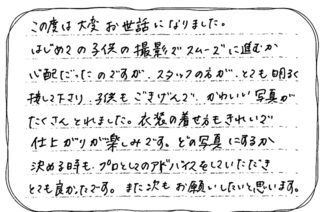 この度は大変お世話になりました。
はじめての子供の撮影でスムーズに進むか
心配だったのですが、スタッフの方が、とても明るく
接して下さり、子供もごきげんで、かわいい写真が
たくさんとれました。衣装の着せ方もきれいで
仕上がりが楽しみです。どの写真にするか
決める時も、プロとしてのアドバイスをしていただき
とても良かったです。また次もお願いしたいと思います。